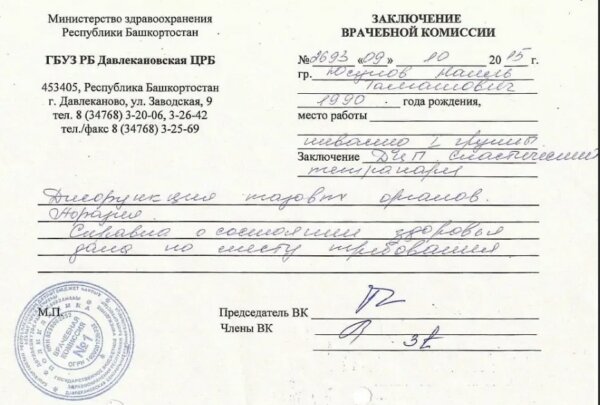 Министерство здравоохранения
Республики Башкортостан
ГБУЗ РБ Давлекановская ЦРБ
453405, Республика Башкортостан
г. Давлеканово, ул. Заводская, 9
тел. 8 (34768) 3-20-06, 3-26-42
тел./факс 8 (34768) 3-25-69
ЗАКЛЮЧЕНИЕ
ВРАЧЕБНОЙ КОМИССИИ
№ 2693 «09» 10 2015 г.
гр. Юсупов Наиль
1990 года рождения,
место работы
инвалид I группы
Заключение ДЦП спастический
тетрапарез
Дисфункция тазовых органов.
Справка о состоянии здоровья
дана по месту требования
М.П.
Председатель ВК
Члены ВК
ВРАЧЕБНАЯ
КОМИССИЯ
№1